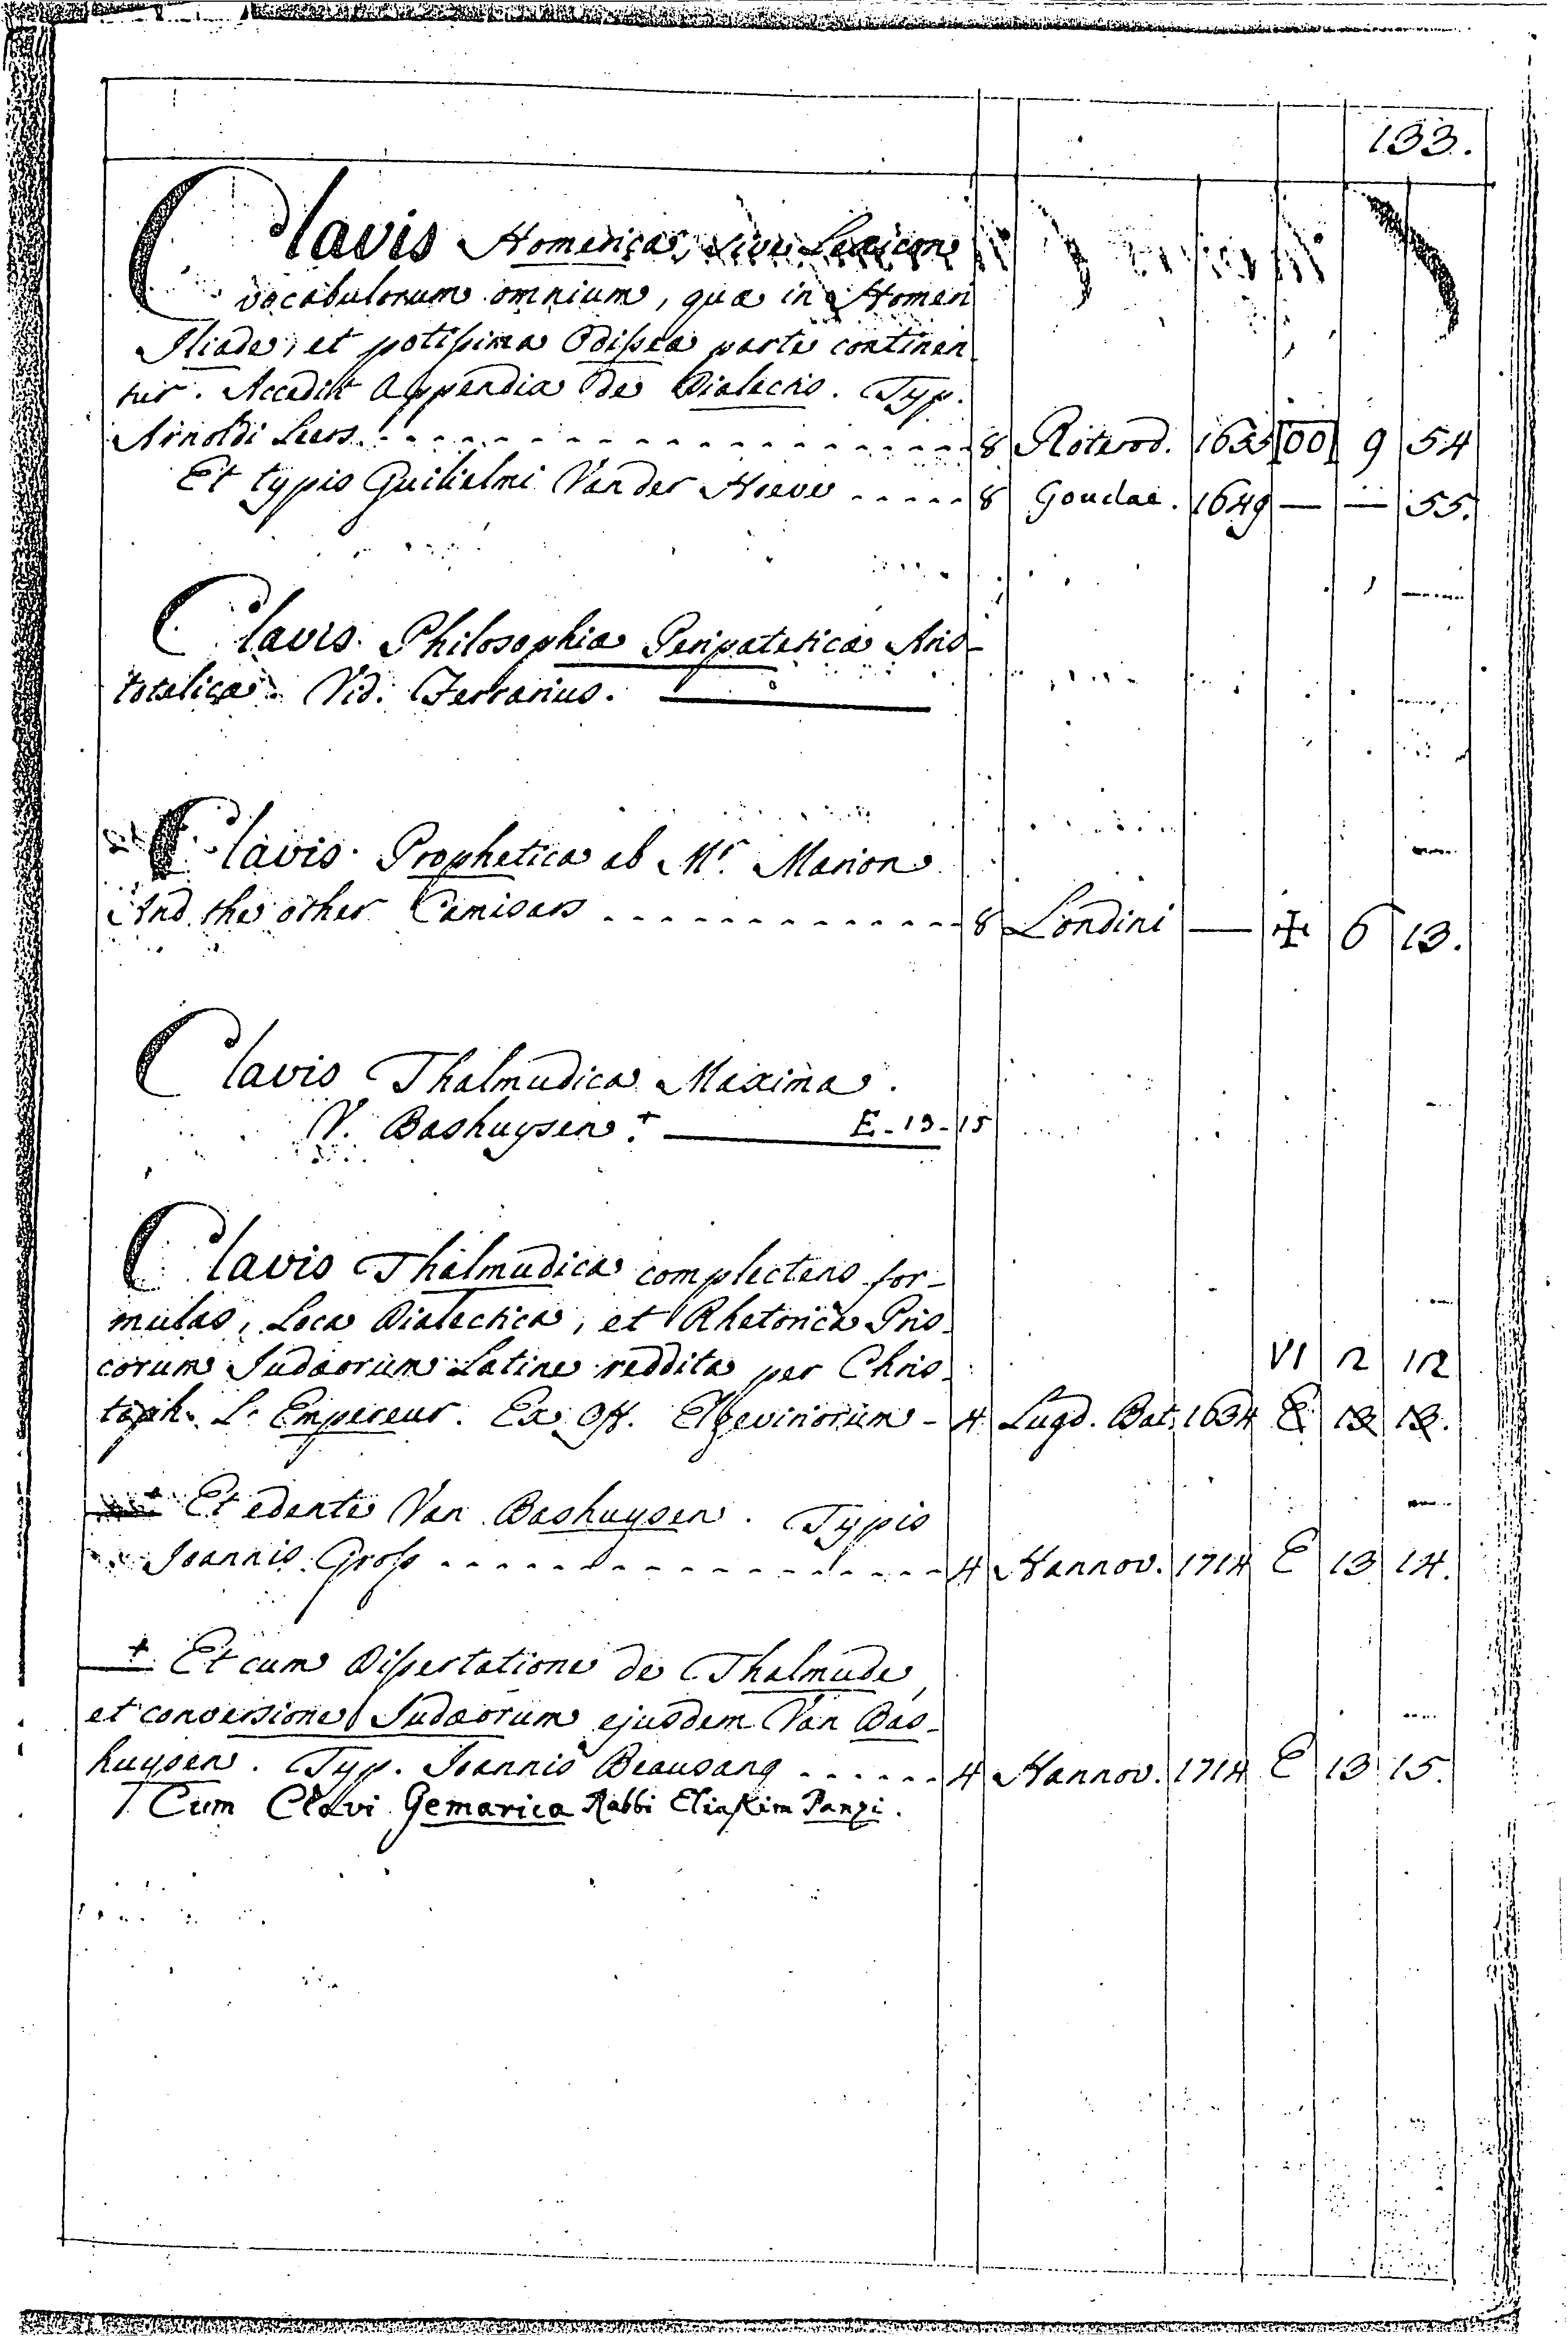 133.
Clavis Homerica, sive Lexicon
vocabulorum omnium, quæ in Homeri
Iliade, et potissima Odissea parte continen
tur. Accedit Appendix de Dialectis. Typ.
Arnoldi Leers. - - - - - 8 Roterod. 1655 00 9 54
Et typis Guilielmi Vander Hoeve - - - - - 8 Goudae. 1649 — — 55.
Clavis Philosophiæ Peripateticæ Aris-
totelicæ. Vid. Ferrarius.
Clavis Prophetica ab Mr. Marion
And the other Camisars - - - - - 8 Londini — ✠ 6 13.
Clavis Thalmudica Maxima.
V. Bashuysen. + E - 13 - 15
Clavis Thalmudica complectens for-
mulas, Loca Dialectica, et Rhetorica Pris-
corum Judæorum Latine reddita per Chris- VI 2 12
toph. L' Empereur. Ex Off. Elzeviriorum - 4 Lugd. Bat. 1634 E 13 13.
+ Et edente Van Bashuysen. Typis
Joannis Gross - - - - - 4 Hannov. 1714 E 13 14.
+ Et cum Dissertatione de Thalmude,
et conversione Judæorum ejusdem Van Bas-
huysen. Typ. Joannis Beausang - - - - - 4 Hannov. 1714 E 13 15.
Cum Clavi Gemarica Rabbi Eliakim Panzi.